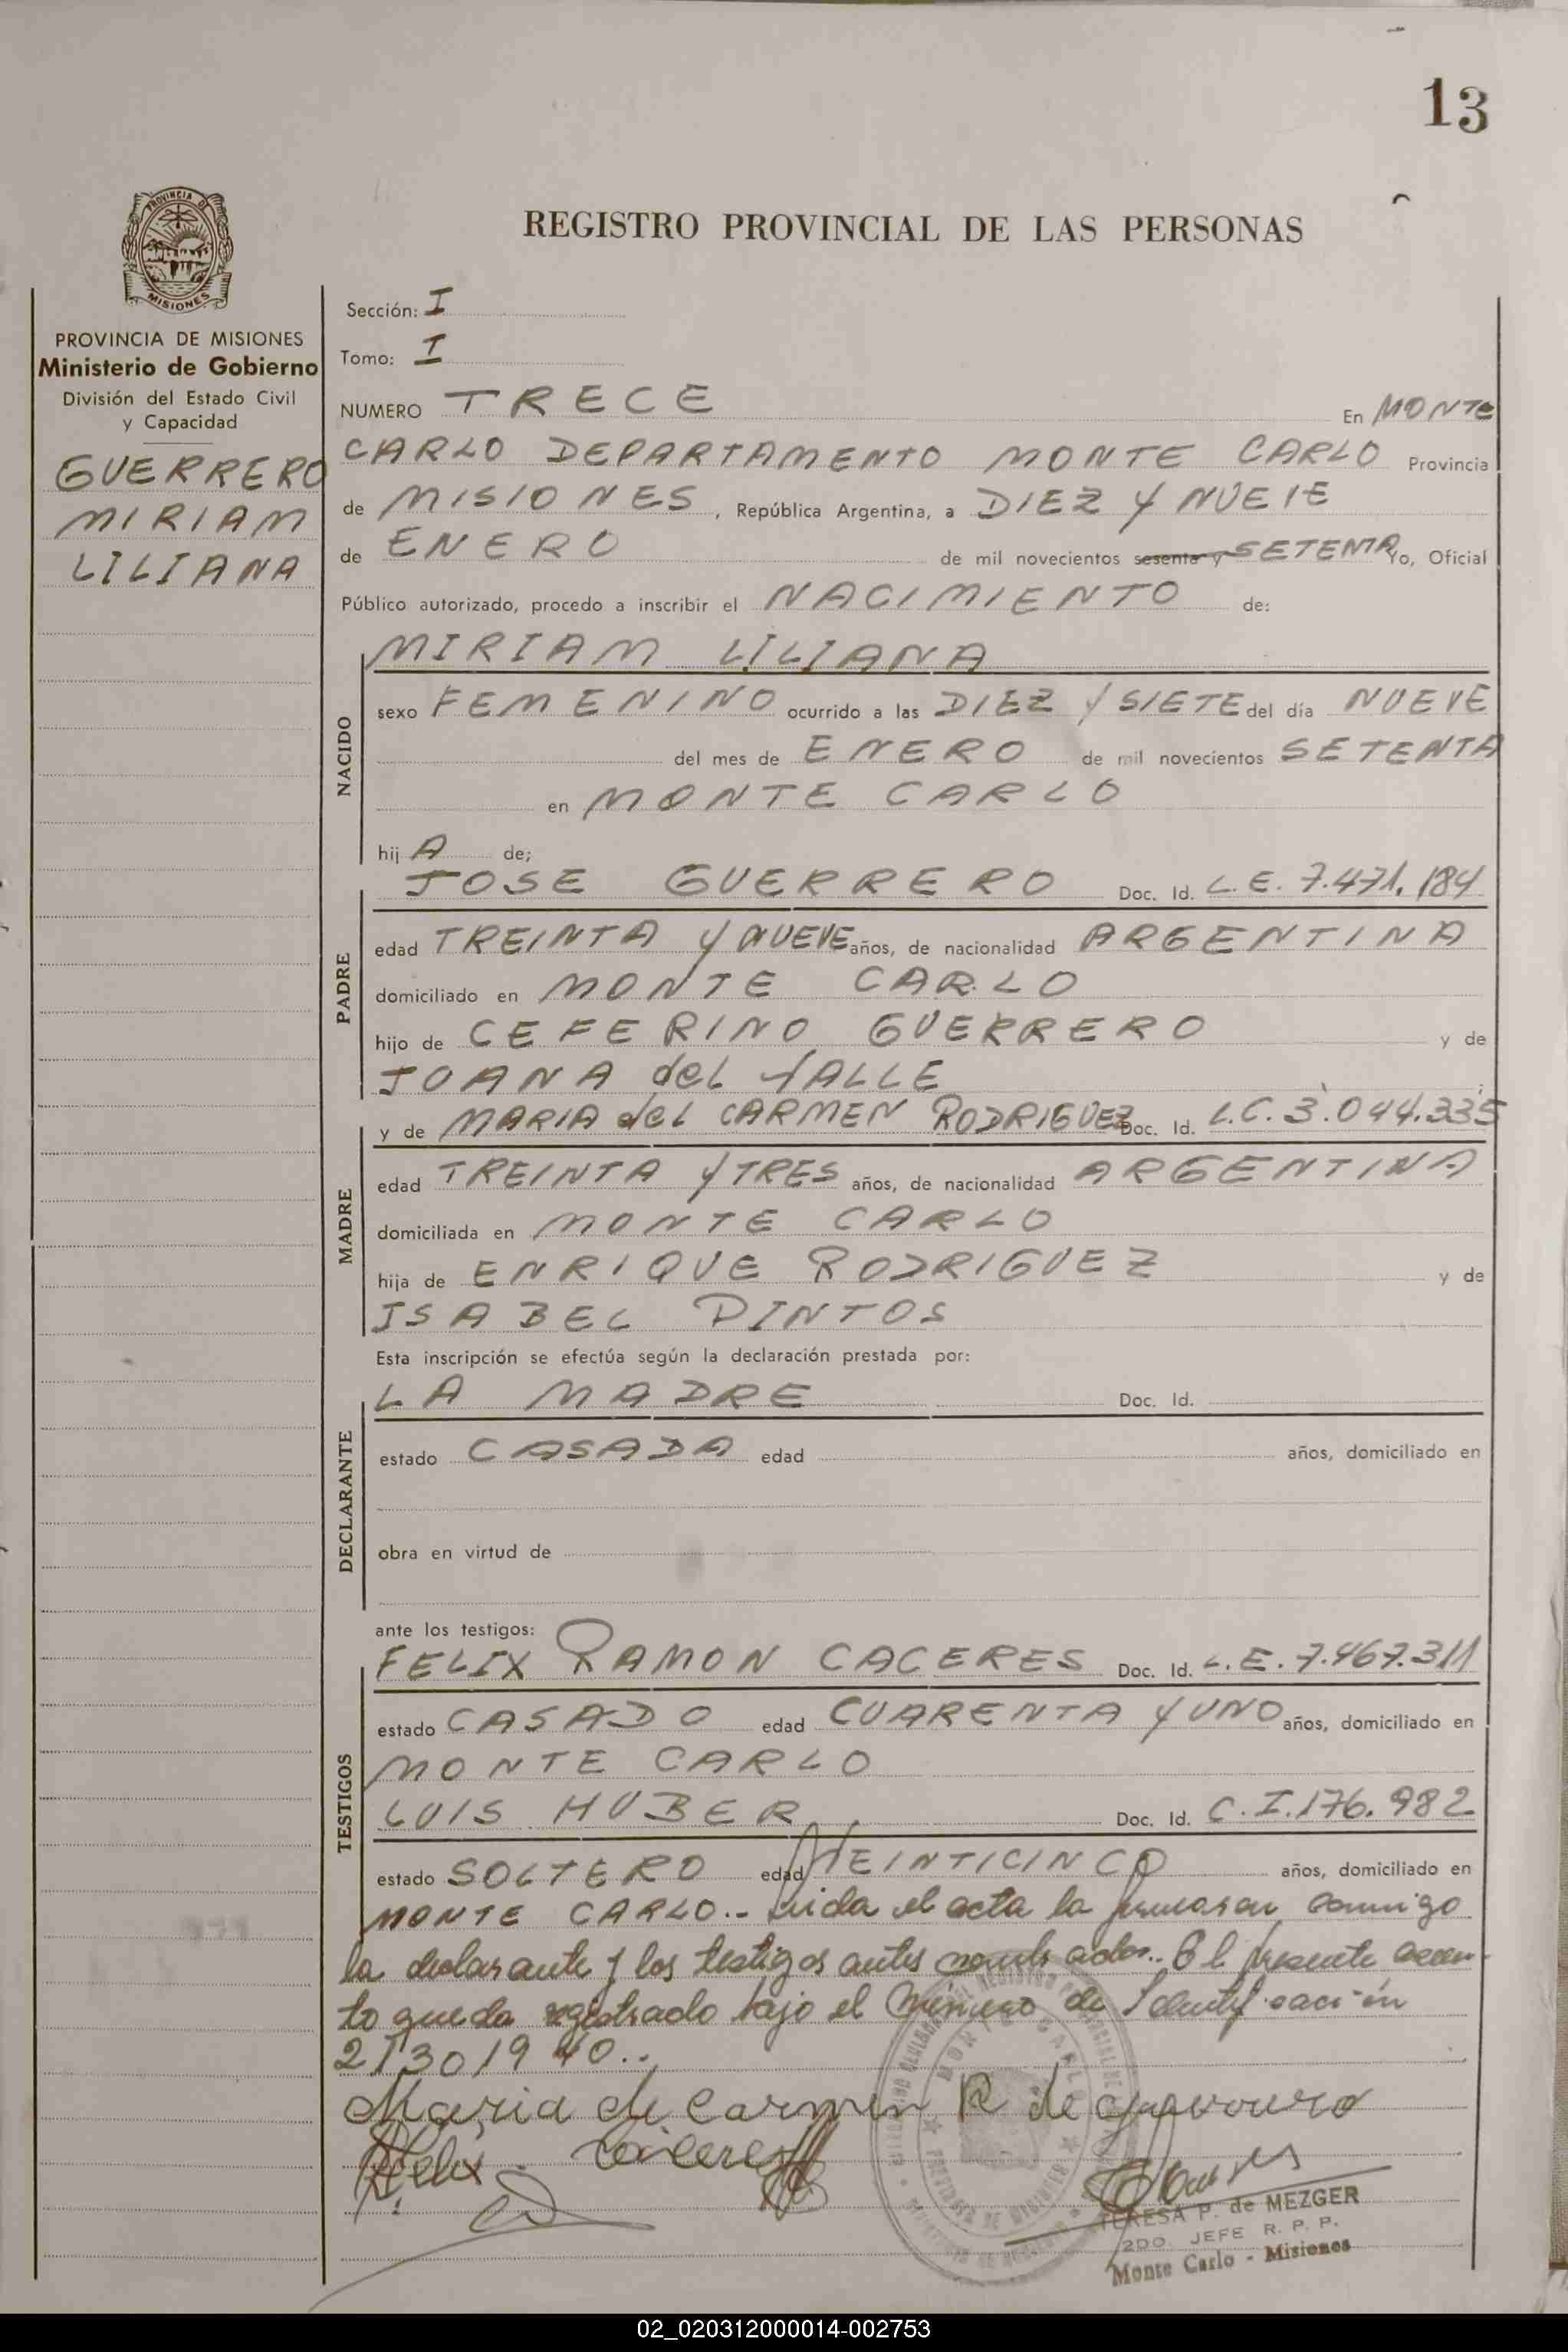 13
REGISTRO PROVINCIAL DE LAS PERSONAS
PROVINCIA DE
MISIONES
PROVINCIA DE MISIONES
Ministerio de Gobierno
División del Estado Civil
y Capacidad
GUERRERO
MIRIAM
LILIANA
Sección: I
Tomo: I
NUMERO TRECE En MONTE
CARLO DEPARTAMENTO MONTE CARLO Provincia
de MISIONES, República Argentina, a DIEZ Y NUEVE
de ENERO de mil novecientos sesenta y SETENTA Yo, Oficial
Público autorizado, procedo a inscribir el NACIMIENTO de:
NACIDO
MIRIAM LILIANA
sexo FEMENINO ocurrido a las DIEZ Y SIETE del día NUEVE
del mes de ENERO de mil novecientos SETENTA
en MONTE CARLO
hij A de;
PADRE
JOSE GUERRERO Doc. Id. L.E. 7.471.184
edad TREINTA Y NUEVE años, de nacionalidad ARGENTINA
domiciliado en MONTE CARLO
hijo de CEFERINO GUERRERO y de
JUANA del VALLE
MADRE
y de MARIA del CARMEN RODRIGUEZ Doc. Id. L.C. 3.044.335
edad TREINTA Y TRES años, de nacionalidad ARGENTINA
domiciliada en MONTE CARLO
hija de ENRIQUE RODRIGUEZ y de
ISABEL PINTOS
Esta inscripción se efectúa según la declaración prestada por:
DECLARANTE
LA MADRE Doc. Id.
estado CASADA edad años, domiciliado en
obra en virtud de
ante los testigos:
TESTIGOS
FELIX RAMON CACERES Doc. Id. L.E. 7.467.311
estado CASADO edad CUARENTA Y UNO años, domiciliado en
MONTE CARLO
LUIS HUBER Doc. Id. C.I. 176.982
estado SOLTERO edad VEINTICINCO años, domiciliado en
MONTE CARLO.- Leida el acta la firmaron conmigo
la declarante y los testigos antes nombrados.. El presente asien-
to queda registrado bajo el Número de Identificación
21301940..
Maria del Carmen R de Guerrero
Felix Caceres
MONTE CARLO
TERESA P. de MEZGER
2DO. JEFE R. P. P.
Monte Carlo - Misiones
02_020312000014-002753